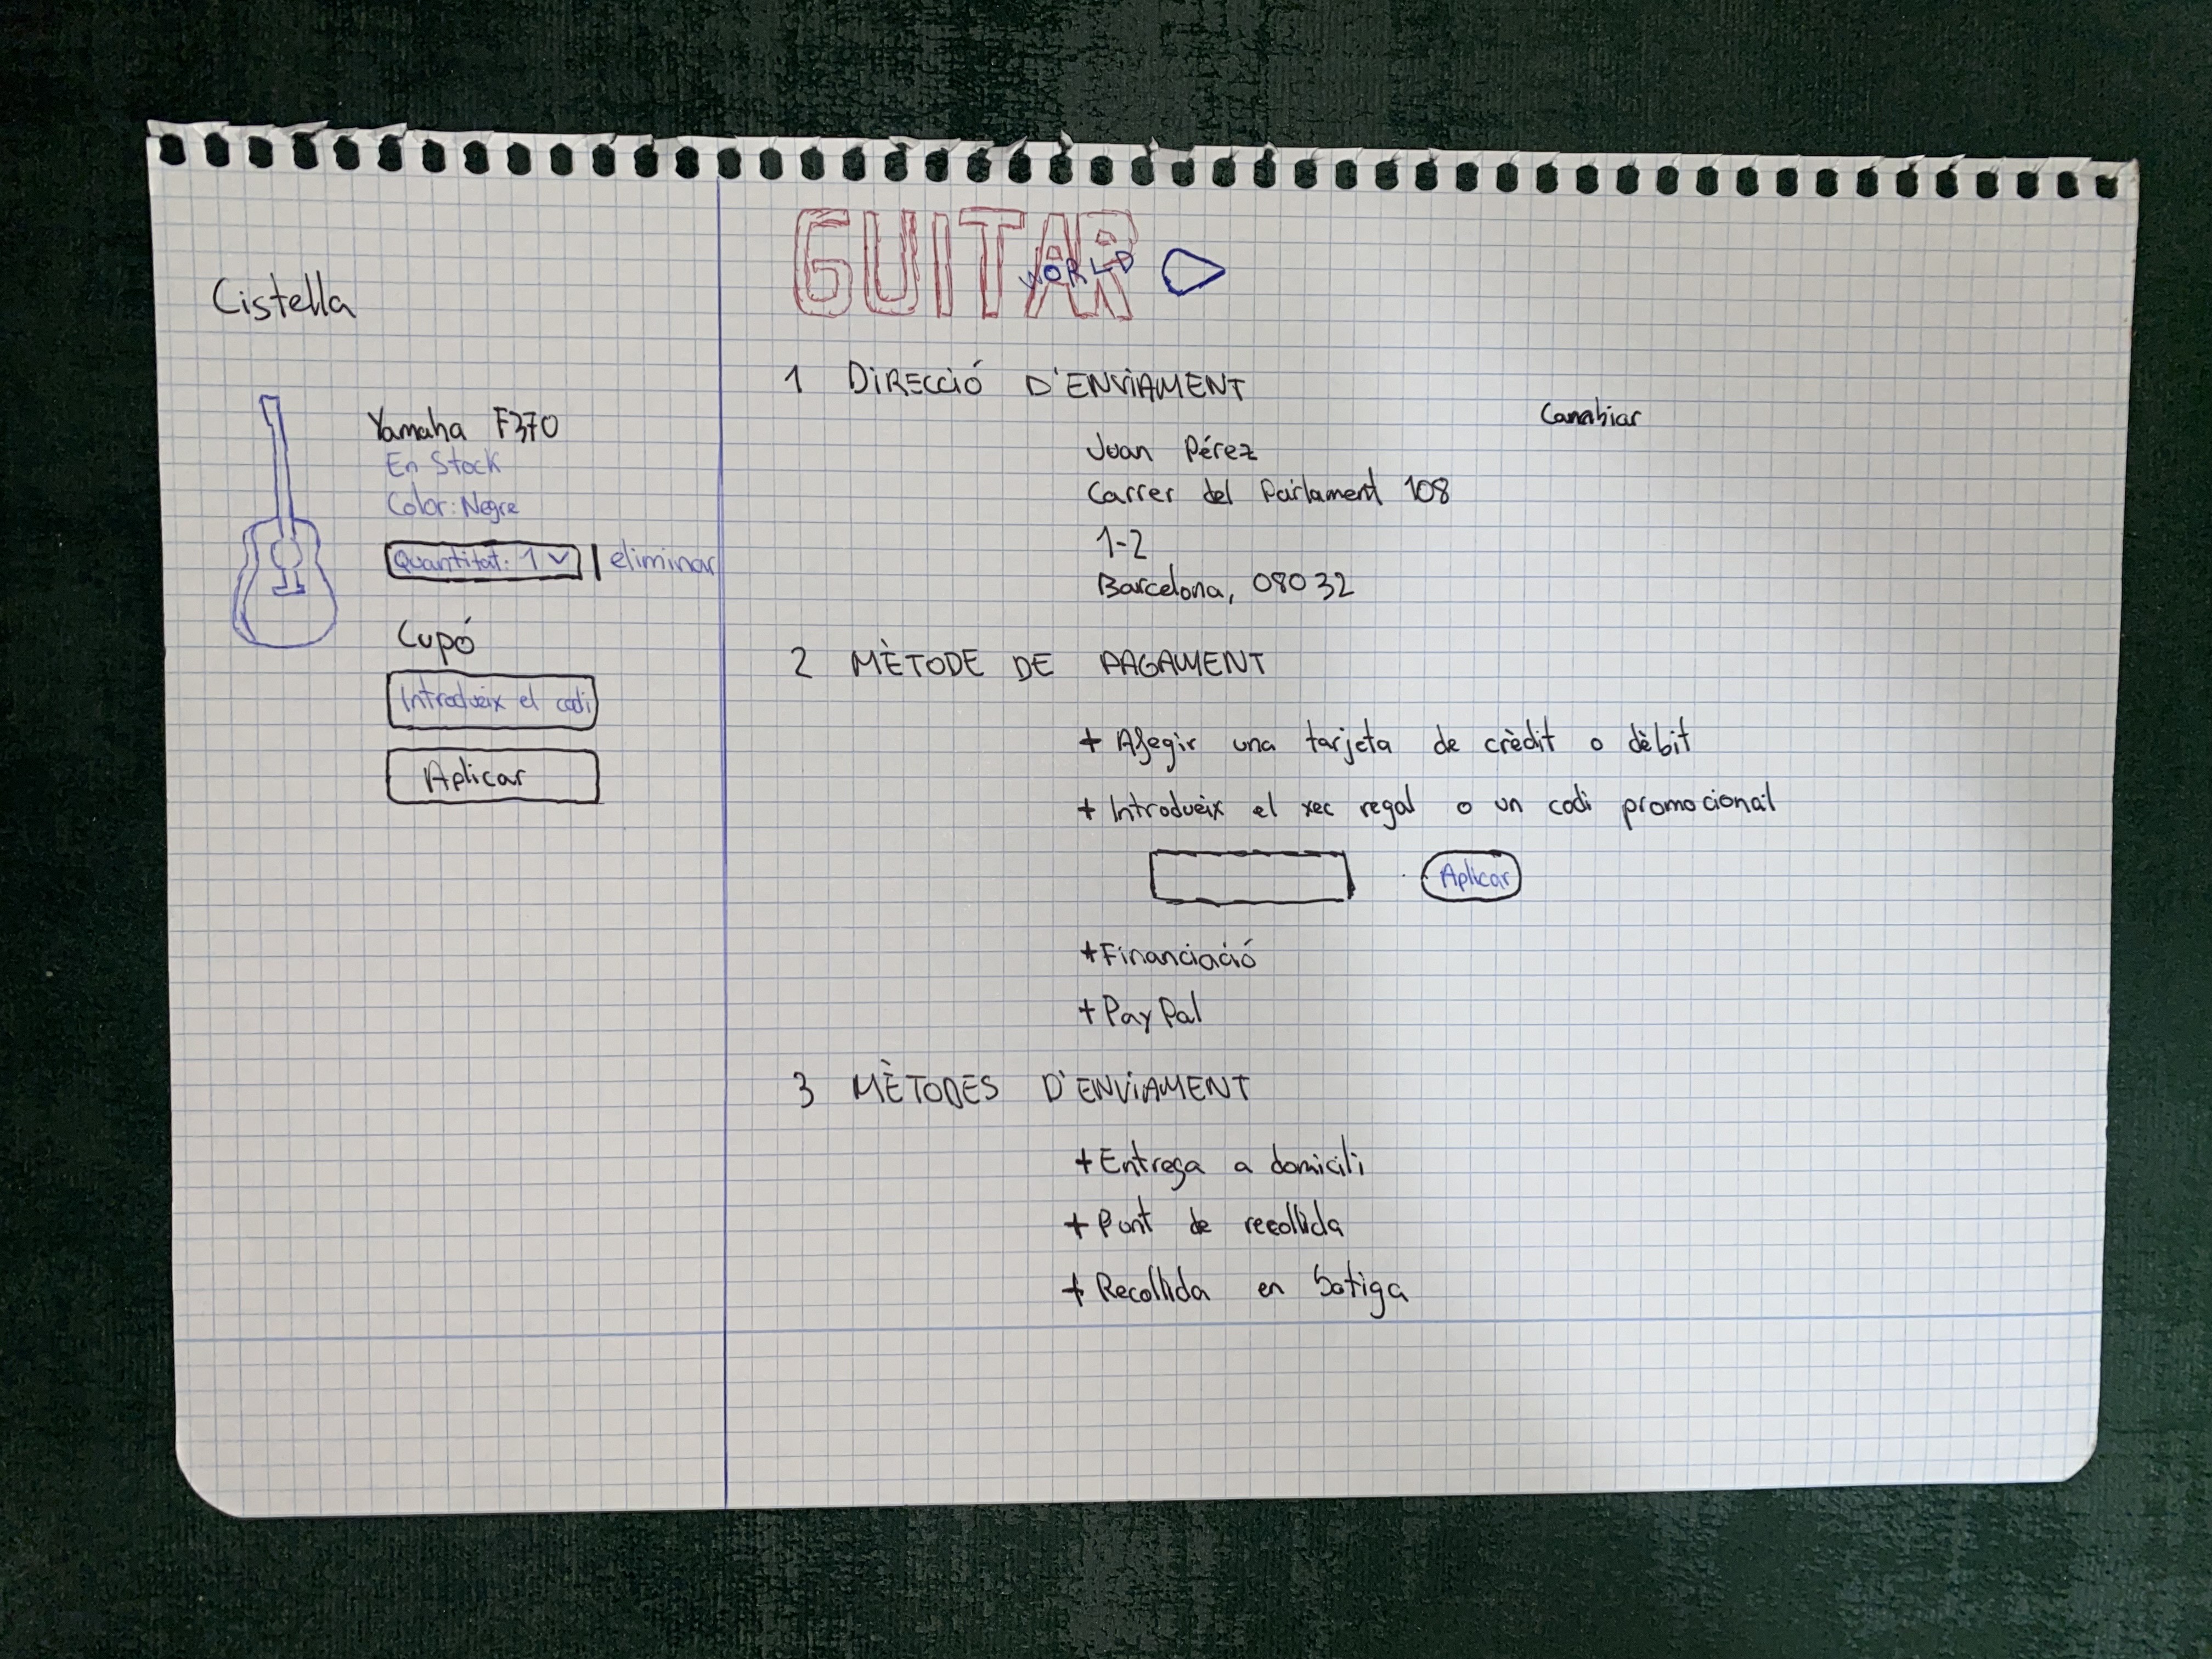 Cistella
Yamaha F370
En Stock
Color: Negre
Quantitat: 1 | eliminar
Cupó
Introdueix el codi
Aplicar
GUITAR
WORLD
1 DIRECCIÓ D'ENVIAMENT
Canabiar
Juan Pérez
Carrer del Parlament 108
1-2
Barcelona, 08032
2 MÈTODE DE PAGAMENT
+ Afegir una tarjeta de crèdit o dèbit
+ Introdueix el xec regal o un codi promocional
Aplicar
+ Financiació
+ PayPal
3 MÈTODES D'ENVIAMENT
+ Entrega a domicili
+ Punt de recollida
+ Recollida en botiga